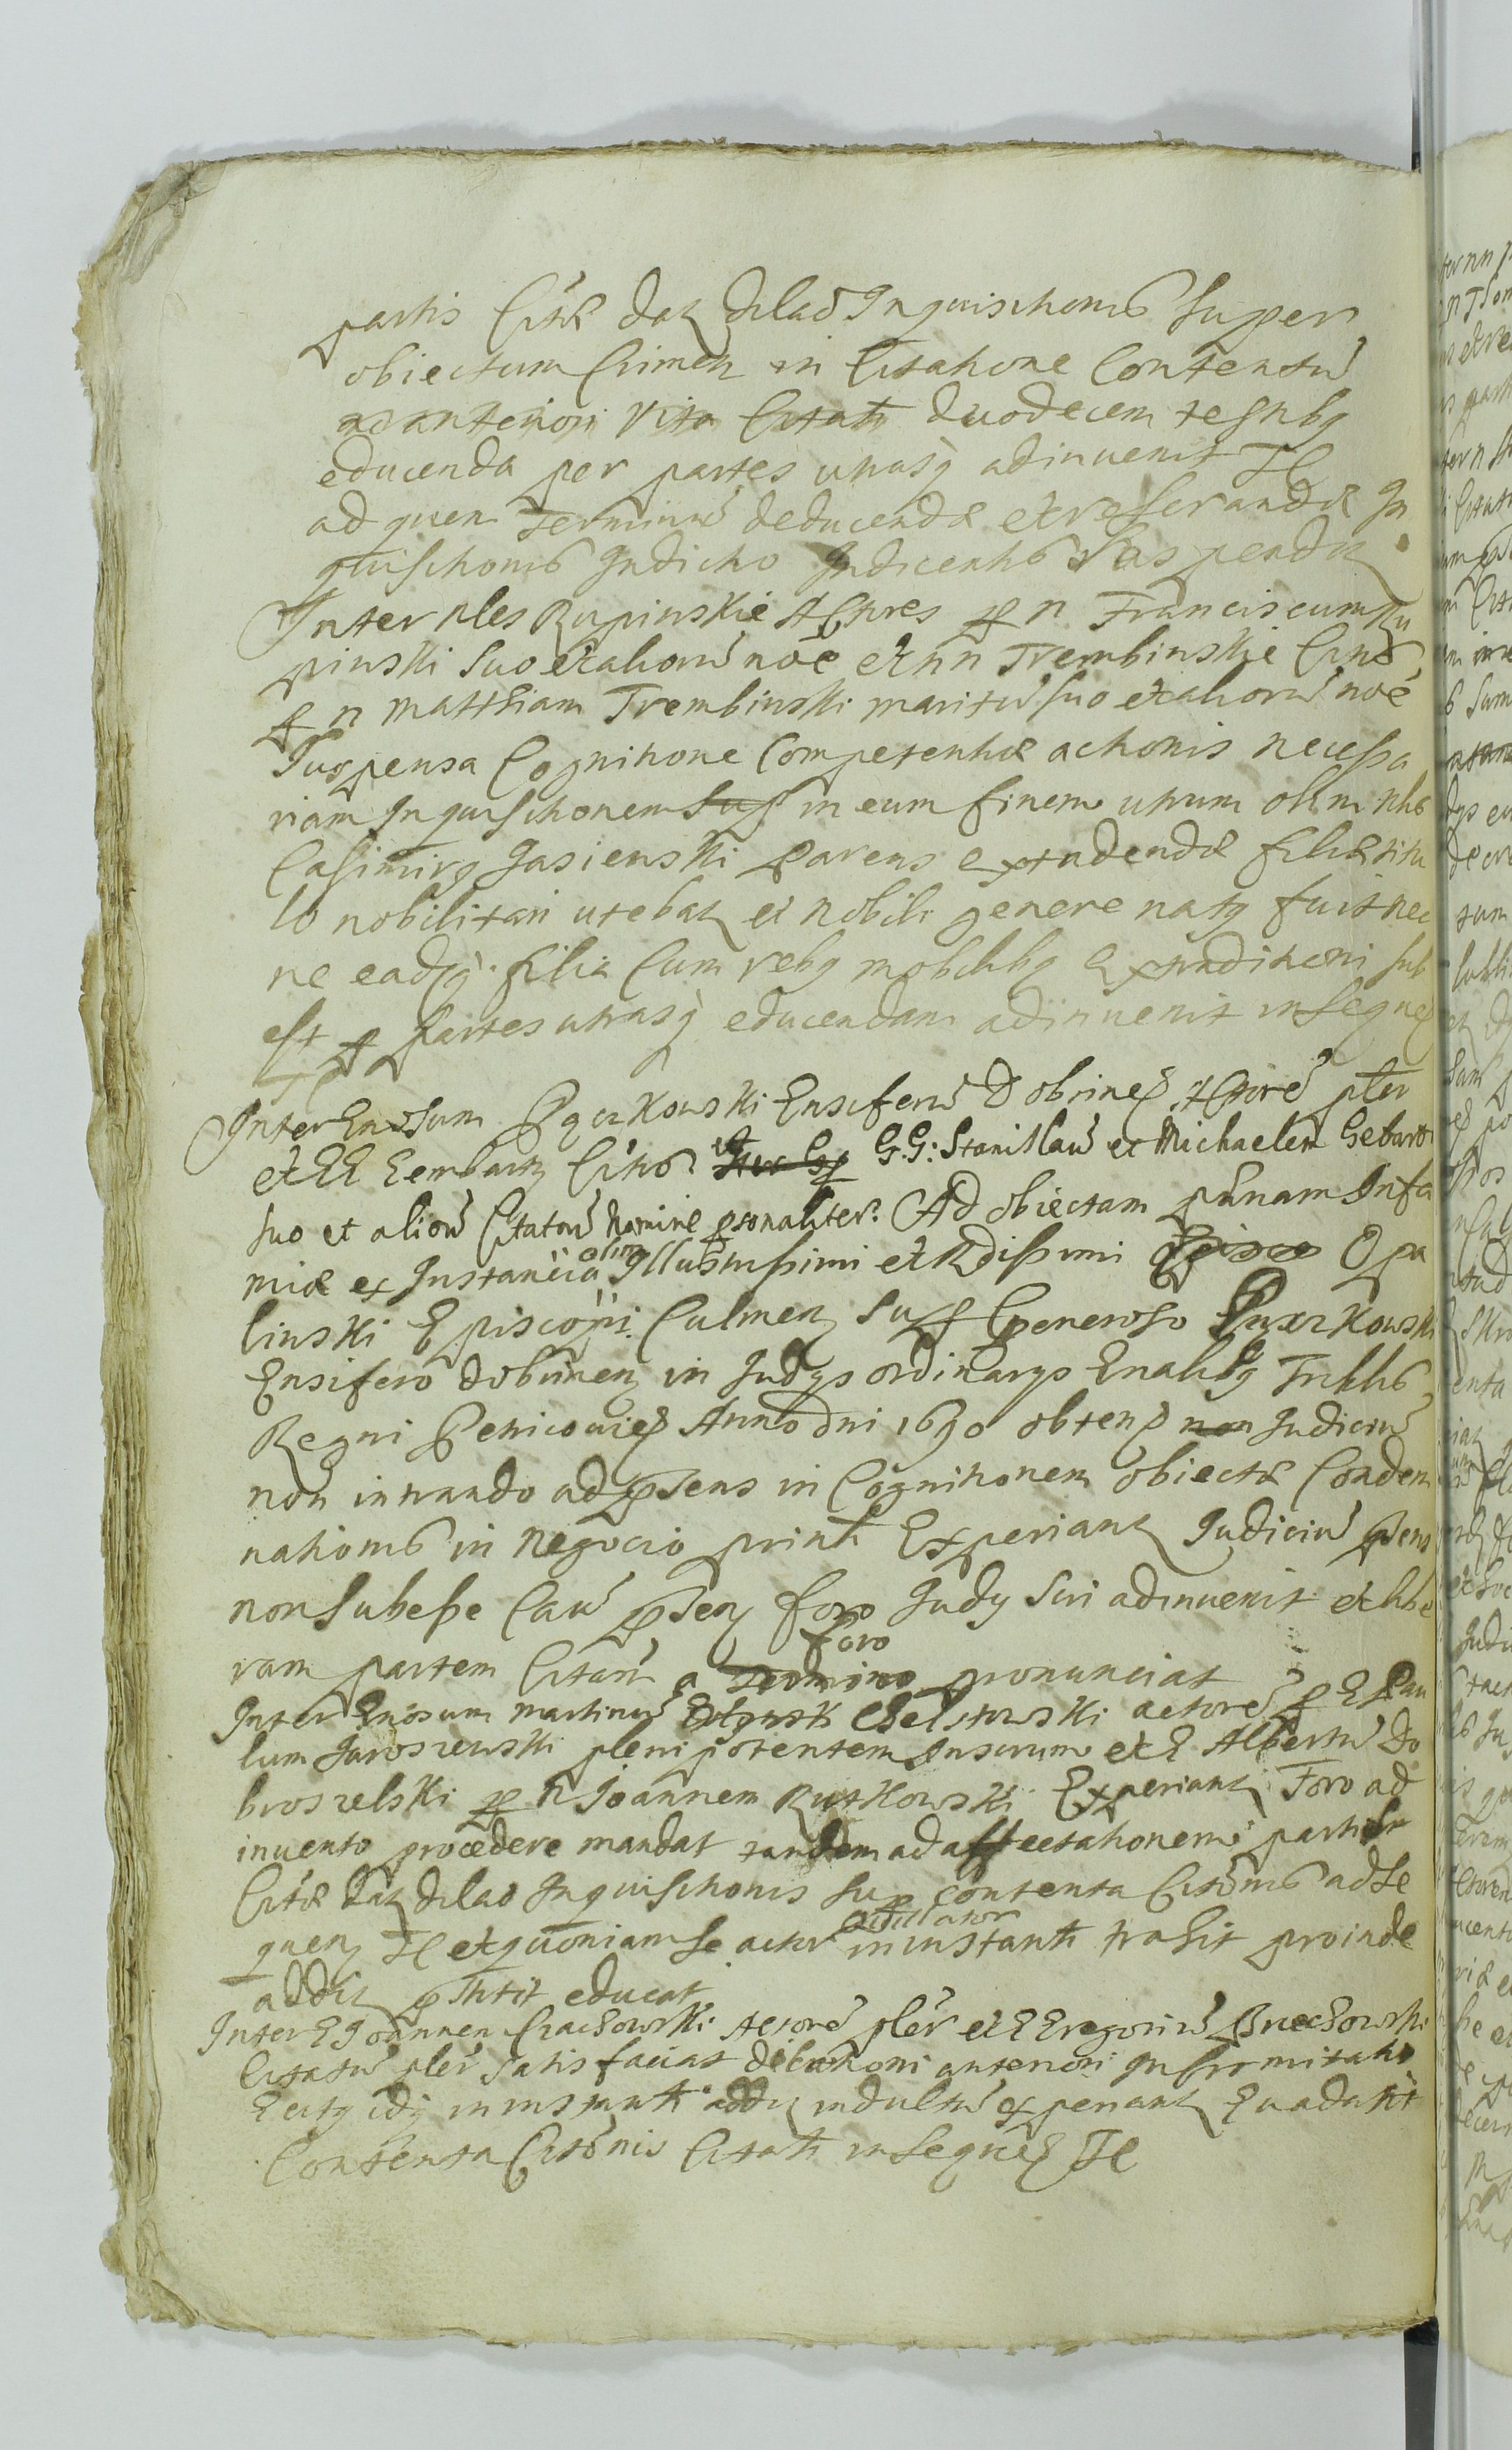 partis Citæ datʒ dilaõ Inquisitionis super
obiectum Crimen in Citatione Contentũ
ac anteriori vita Citati duodecem testibʒ
educenda per partes utrasqʒ adinuenit Tl
ad quem Terminũ deducendæ et reserandæ In
quisitionis Indicto Indicentis
Inter nles Rupinskie Actores per n Franciscum Ru
pinski suo et aliorũ nõe et nn Trembinskie Citos
per n Matthiam Trembinski maritũ suo et aliorũ nõe
Suspensa Cognitione Competentiæ actionis necessa
riam Inquisitionem sup in eum finem utrum olim nlis
Casimirʒ Jasienski Parens extradendæ filiæ titu
lo nobilitari utebatʒ et nobili genere natʒ fuit nec
ne eadqʒ filia Cum rebʒ mobilibʒ Extraditioni sub
est per partes utrasqʒ educendam adinuenit in seqneñ
Tl
Inter Gnosum Ensiferũ Dobrineñ Actorẽ pler
et GG Gembartʒ Citos G.G: Stanislaũ et Michaelem Gebart
suo et aliorũ Citatorũ Nomine personaliter. Ad obiectam pœnam Infa
miæ ex Instantia olim Illustrissimi et Rdissimi Episco Opa
linski Episcopi Culmenʒ sup Generoso
Ensifero dobrinenʒ in Judÿs ordinarÿs Gnalibʒ Trblis
Regni Petricouieñ Anno dni 1690 obteñ non Judiciũ
non intrando ad præsens in Cognitionem obiectæ Condem
nationis in negocio printi Experiantʒ Judiciũ præsens
non subesse Causã præsenʒ foro Judÿ sui adinuenit et libe
ram partem Citatã a Termino foro pronunciat
Inter Gnosum Martinũ Chelstowski actorẽ per G Pau
lum Jaroszewski plenipotentem Inscrium et G Albertũ Do
broszelski per n Joannem Rutkowski Experiantʒ Foro ad
inuento procedere mandat tandem ad affectationem partis
Citæ datʒ dilaõ Inquisitionis sup contenta Citõnis ad se
quenʒ Tl et quoniam se actor in instanti trahit proinde
additʒ educat
Inter G Joannem Ciachowski Actorẽ plẽr et G Gregoriũ Bruchowski
Citatũ plẽr satisfaciat dilationi anteriori Infirmitatis
in instanti additʒ indultũ experiantʒ Euadatit
Contenta Citõnis Citati in seqneñ Tl